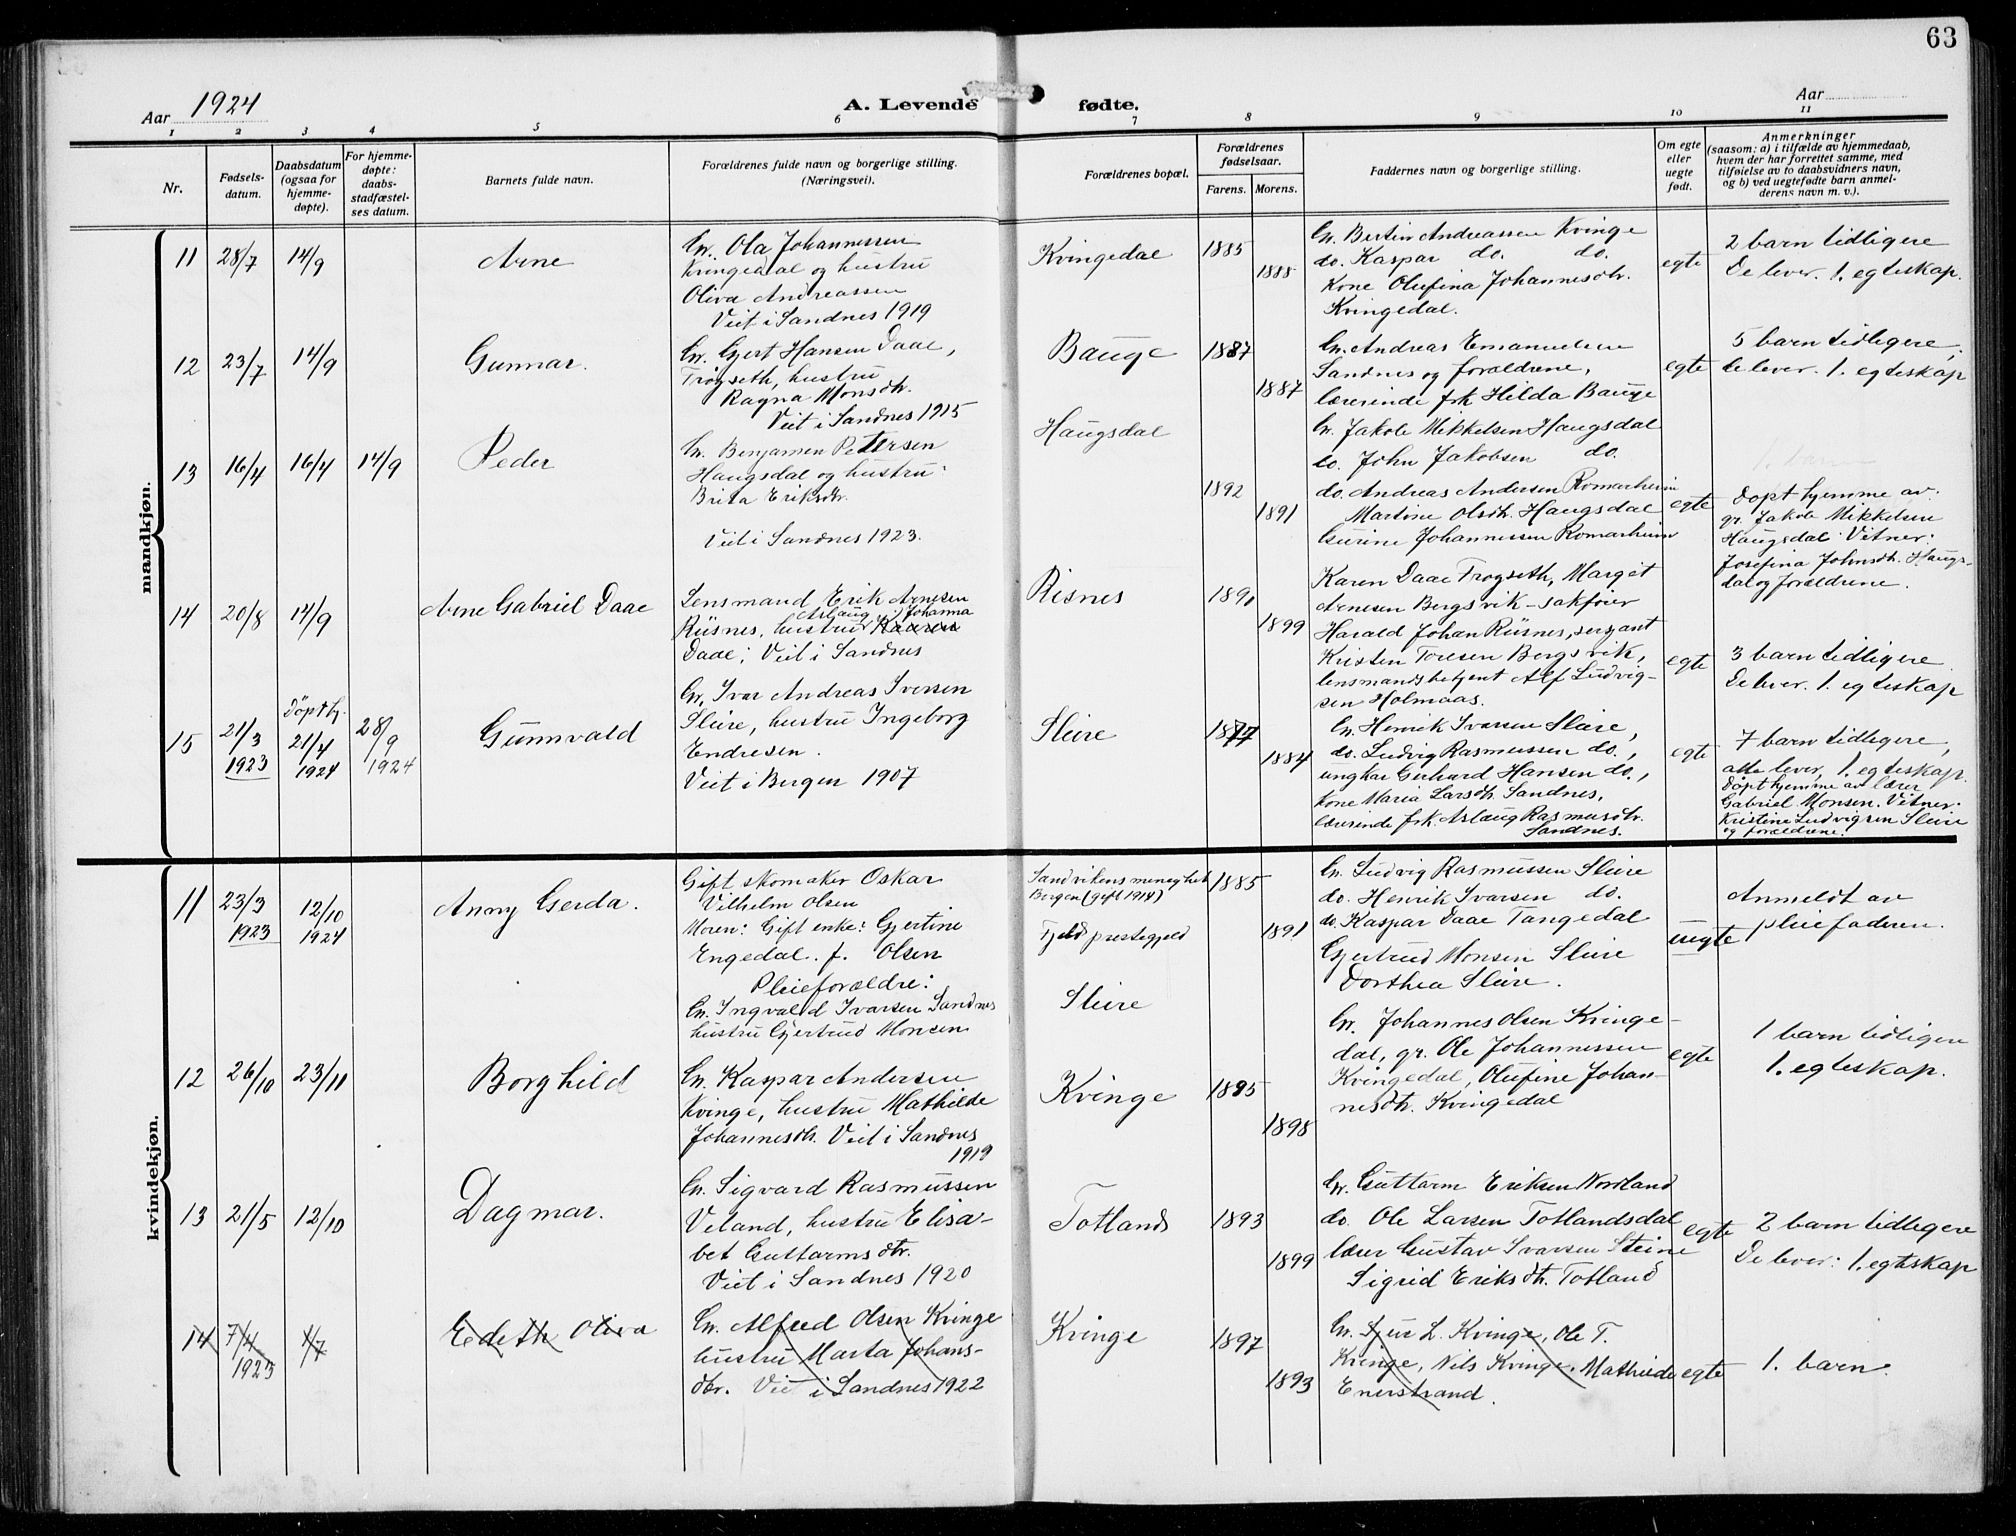 63
Aar 1924
A. Levende fødte.
Aar
1 2 3 4 5 6 7 8 9 10 11
Nr.
Fødsels-
datum.
Daabsdatum
(ogsaa for
hjemme-
døpte).
For hjemme-
døpte:
daabs-
stadfæstel-
ses datum.
Barnets fulde navn.
Forældrenes fulde navn og borgerlige stilling.
(Næringsvei).
Forældrenes bopæl.
Forældrenes
fødselsaar.
Farens. Morens.
Faddernes navn og borgerlige stilling.
Om egte
eller
uegte
født.
Anmerkninger
(saasom: a) i tilfælde av hjemmedaab,
hvem der har forrettet samme, med
tilføielse av to daabsvidners navn,
og b) ved uegtefødte barn anmel-
derens navn m. v.).
mandkjøn.
11 28/7 14/9
Arne
Gr. Ola Johannessen
Kvingedal og hustru
Oliva Andreassen
Viet i Sandnes 1919
Kvingedal
1885
1888
Gr. Bertin Andreassen Kvinge
do. Kaspar do. do.
Kone Olufina Johannesdtr.
Kvingedal.
egte
2 barn tidligere
De lever. 1. egteskap.
12 23/7 14/9
Gunnar.
Gr. Gjert Hansen Daae,
Trogseth, hustru
Ragna Monsdtr.
Viet i Sandnes 1915
Bauge
1887
1887
Gr. Andreas Emanuelsen
Sandnes og forældrene,
lærerinde frk Hilda Bauge
egte
5 barn tidligere,
de lever. 1. egteskap
13 16/4 16/4 14/9
Peder
Gr. Benjamen Petersen
Haugsdal og hustru:
Brita Eriksdtr.
Viet i Sandnes 1923.
Haugsdal
1892
1891
Gr. Jakob Mikkelsen Haugsdal
do. John Jakobsen do.
do. Andreas Andersen Romarheim
Martine Olsdtr. Haugsdal
Gurine Johannessen Romarheim
egte
1. barn
Døpt hjemme av
gr. Jakob Mikkelsen
Haugsdal. Vitner:
Josefina Johnsdtr. Haugs-
dal og forældrene.
14 20/8 14/9
Arne Gabriel Daae
Lensmand Erik Arnesen
Aslaug Johanna
Risnes, hustru Kaaren
Daae; Viet i Sandnes
Risnes
1890
1899
Karen Daae Trogseth, Margit
Arnesen Bergsvik – sakfører
Harald Johan Risnes, sersjant
Kristen Toresen Bergsvik,
lensmandsbetjent Alf Ludvig-
sen Holmaas.
egte
3 barn tidligere
De lever. 1. egteskap
15 21/3 1923
Døpt hj.
21/4 1924
28/9 1924
Gunnvald
Gr. Ivar Andreas Iversen
Sleire, hustru Ingeborg
Endresen.
Viet i Bergen 1907
Sleire
1877
1884
Gr. Henrik Ivarsen Sleire,
do. Ludvig Rasmussen do.,
ungkar Gerhard Hansen do.,
Kone Maria Larsdtr. Sandnes,
lærerinde frk. Aslaug Rasmusdtr.
Sandnes.
egte
7 barn tidligere,
alle lever, 1. egteskap.
Døpt hjemme av lærer
Gabriel Monsen. Vitner:
Kristine Ludvigsen Sleire
og forældrene.
kvindekjøn.
11 23/3 1923 12/10 1924
Anny Gerda.
Gift skomaker Oskar
Vilhelm Olsen
Moren: Gift enke: Gjertine
Engedal. f. Olsen
Pleieforældre:
Gr. Ingvald Ivarsen Sandnes
hustru Gjertrud Monsen
Sandvikens menighet
Bergen (gift 1914)
Fjeld prestegjeld
Sleire
1885
1891
Gr. Ludvig Rasmussen Sleire
do. Henrik Ivarsen do.
do. Kaspar Daae Tangedal
Gjertrud Monsen Sleire
Dorthea Sleire.
uegte
Anmeldt av
pleiefaderen.
12 26/10 23/11
Borghild
Gr. Kaspar Andersen
Kvinge, hustru Mathilde
Johannesdtr. Viet i Sandnes
1919
Kvinge
1895
1898
Gr. Johannes Olsen Kvinge-
dal, gr. Ole Johannessen
Kvingedal, Olufine Johan-
nesdtr. Kvingedal
egte
1 barn tidligere
1. egteskap.
13 21/5 12/10
Dagmar.
Gr. Sigvard Rasmussen
Veland, hustru Elisa-
bet Guttormsdtr.
Viet i Sandnes 1920
Totland
1893
1899
Gr. Guttorm Eriksen Nordland
do. Ole Larsen Totlandsdal
lærer Gustav Ivarsen Steine
Sigrid Eriksdtr. Totland
egte
2 barn tidligere
De lever: 1. egteskap
14 7/4 1923 1/7
Edeth Oliva
Gr. Alfred Olsen Kvinge
hustru Marta Johans-
dtr. Viet i Sandnes 1922
Kvinge
1897
1893
Gr. Sjur L. Kvinge, Ole T.
Kvinge, Nils Kvinge, Mathilde
Enerstrand.
egte
1. barn.